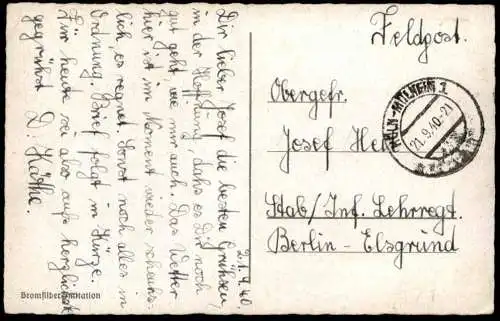 21.9.40.
Dir lieber Josef die besten Grüßen,
in der Hoffnung dahs es Dir noch
gut geht, wie mir auch. Das Wetter
hier ist im Moment wieder scheuhs-
lich, es regnet. Sonst noch alles in
Ordnung. Brief folgt in Kürze.
Für heute sei also aufs herzlichst
gegrühst D. Käthe.
Bromsilber-Imitation
Feldpost.
KÖLN-MÜLHEIM 1
21.9.40.-21
Obergefr.
Josef
Stab/Inf. Lehrregt.
Berlin-Elsgrund